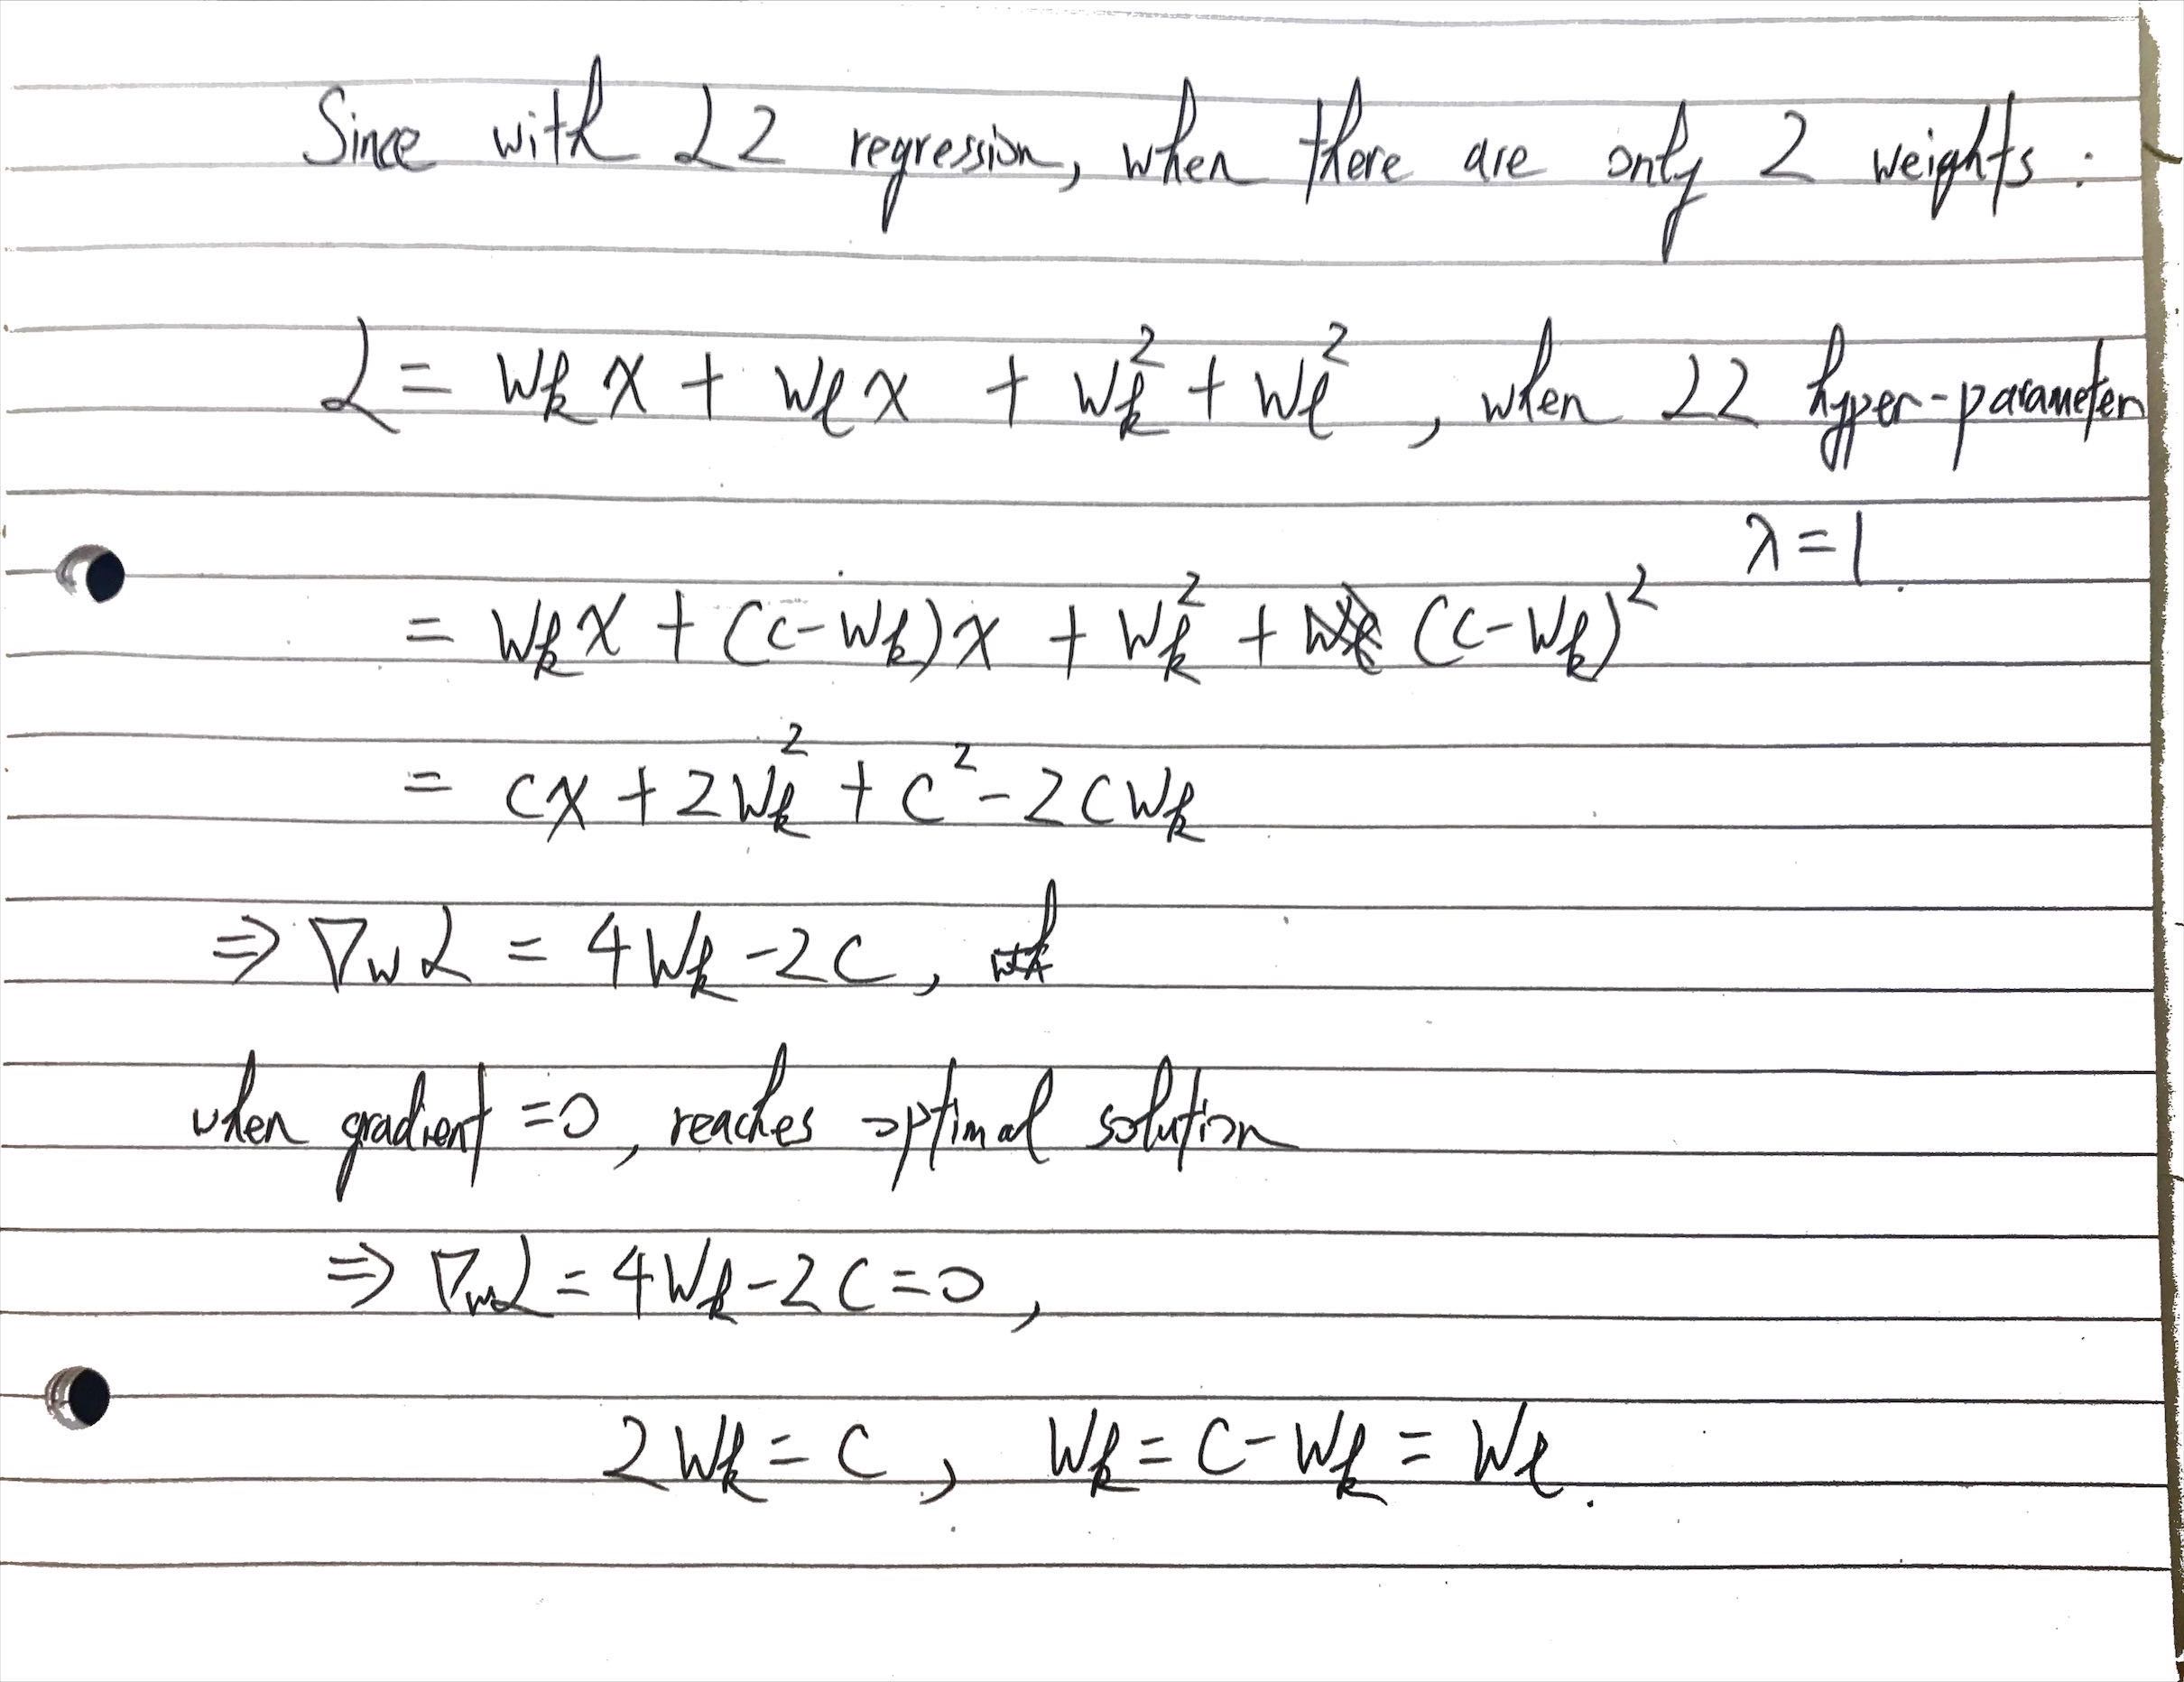 Since with L2 regression, when there are only 2 weights:
L = Wk x + Wl x + Wk² + Wl², when L2 hyper-parameter
λ=1.
= Wk x + (c-Wk)x + Wk² + (c-Wk)²
= cx + 2Wk² + c² - 2cWk
⇒ ∇w L = 4Wk - 2c,
when gradient =0, reaches optimal solution
⇒ ∇w L = 4Wk - 2c = 0,
2Wk = c, Wk = c - Wk = Wl.